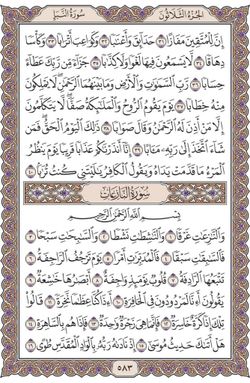 الجُزْءُ الثَّلَاثُونَ
سُورَةُ النَّبَإِ
إِنَّ لِلْمُتَّقِينَ مَفَازًا ٣١ حَدَآئِقَ وَأَعْنَٰبًا ٣٢ وَكَوَاعِبَ أَتْرَابًا ٣٣ وَكَأْسًا
دِهَاقًا ٣٤ لَّا يَسْمَعُونَ فِيهَا لَغْوًا وَلَا كِذَّٰبًا ٣٥ جَزَآءً مِّن رَّبِّكَ عَطَآءً
حِسَابًا ٣٦ رَّبِّ ٱلسَّمَٰوَٰتِ وَٱلْأَرْضِ وَمَا بَيْنَهُمَا ٱلرَّحْمَٰنِ لَا يَمْلِكُونَ
مِنْهُ خِطَابًا ٣٧ يَوْمَ يَقُومُ ٱلرُّوحُ وَٱلْمَلَٰٓئِكَةُ صَفًّا لَّا يَتَكَلَّمُونَ
إِلَّا مَنْ أَذِنَ لَهُ ٱلرَّحْمَٰنُ وَقَالَ صَوَابًا ٣٨ ذَٰلِكَ ٱلْيَوْمُ ٱلْحَقُّ فَمَن
شَآءَ ٱتَّخَذَ إِلَىٰ رَبِّهِۦ مَـَٔابًا ٣٩ إِنَّآ أَنذَرْنَٰكُمْ عَذَابًا قَرِيبًا يَوْمَ يَنظُرُ
ٱلْمَرْءُ مَا قَدَّمَتْ يَدَاهُ وَيَقُولُ ٱلْكَافِرُ يَٰلَيْتَنِى كُنتُ تُرَٰبًۢا ٤٠
سُورَةُ النَّازِعَاتِ
بِسْمِ ٱللَّهِ ٱلرَّحْمَٰنِ ٱلرَّحِيمِ
وَٱلنَّٰزِعَٰتِ غَرْقًا ١ وَٱلنَّٰشِطَٰتِ نَشْطًا ٢ وَٱلسَّٰبِحَٰتِ سَبْحًا ٣
فَٱلسَّٰبِقَٰتِ سَبْقًا ٤ فَٱلْمُدَبِّرَٰتِ أَمْرًا ٥ يَوْمَ تَرْجُفُ ٱلرَّاجِفَةُ ٦
تَتْبَعُهَا ٱلرَّادِفَةُ ٧ قُلُوبٌ يَوْمَئِذٍ وَاجِفَةٌ ٨ أَبْصَٰرُهَا خَٰشِعَةٌ ٩
يَقُولُونَ أَءِنَّا لَمَرْدُودُونَ فِى ٱلْحَافِرَةِ ١٠ أَءِذَا كُنَّا عِظَٰمًا نَّخِرَةً ١١ قَالُوا۟
تِلْكَ إِذًا كَرَّةٌ خَاسِرَةٌ ١٢ فَإِنَّمَا هِىَ زَجْرَةٌ وَٰحِدَةٌ ١٣ فَإِذَا هُم بِٱلسَّاهِرَةِ ١٤
هَلْ أَتَىٰكَ حَدِيثُ مُوسَىٰٓ ١٥ إِذْ نَادَىٰهُ رَبُّهُۥ بِٱلْوَادِ ٱلْمُقَدَّسِ طُوًى ١٦
٥٨٣